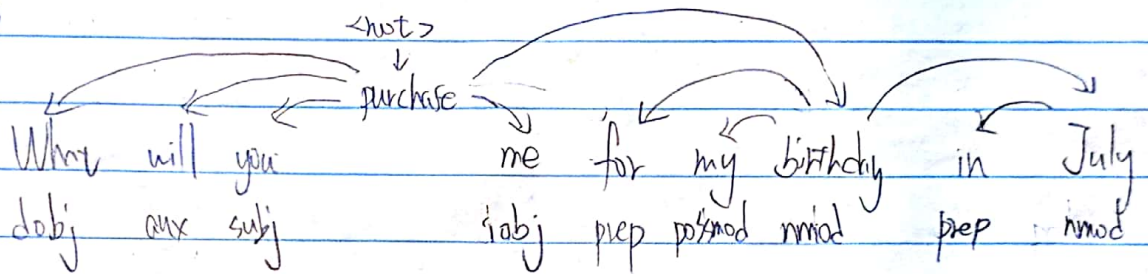 <root>
purchase
What will you me for my birthday in July
dobj aux subj iobj prep possmod nmod prep nmod